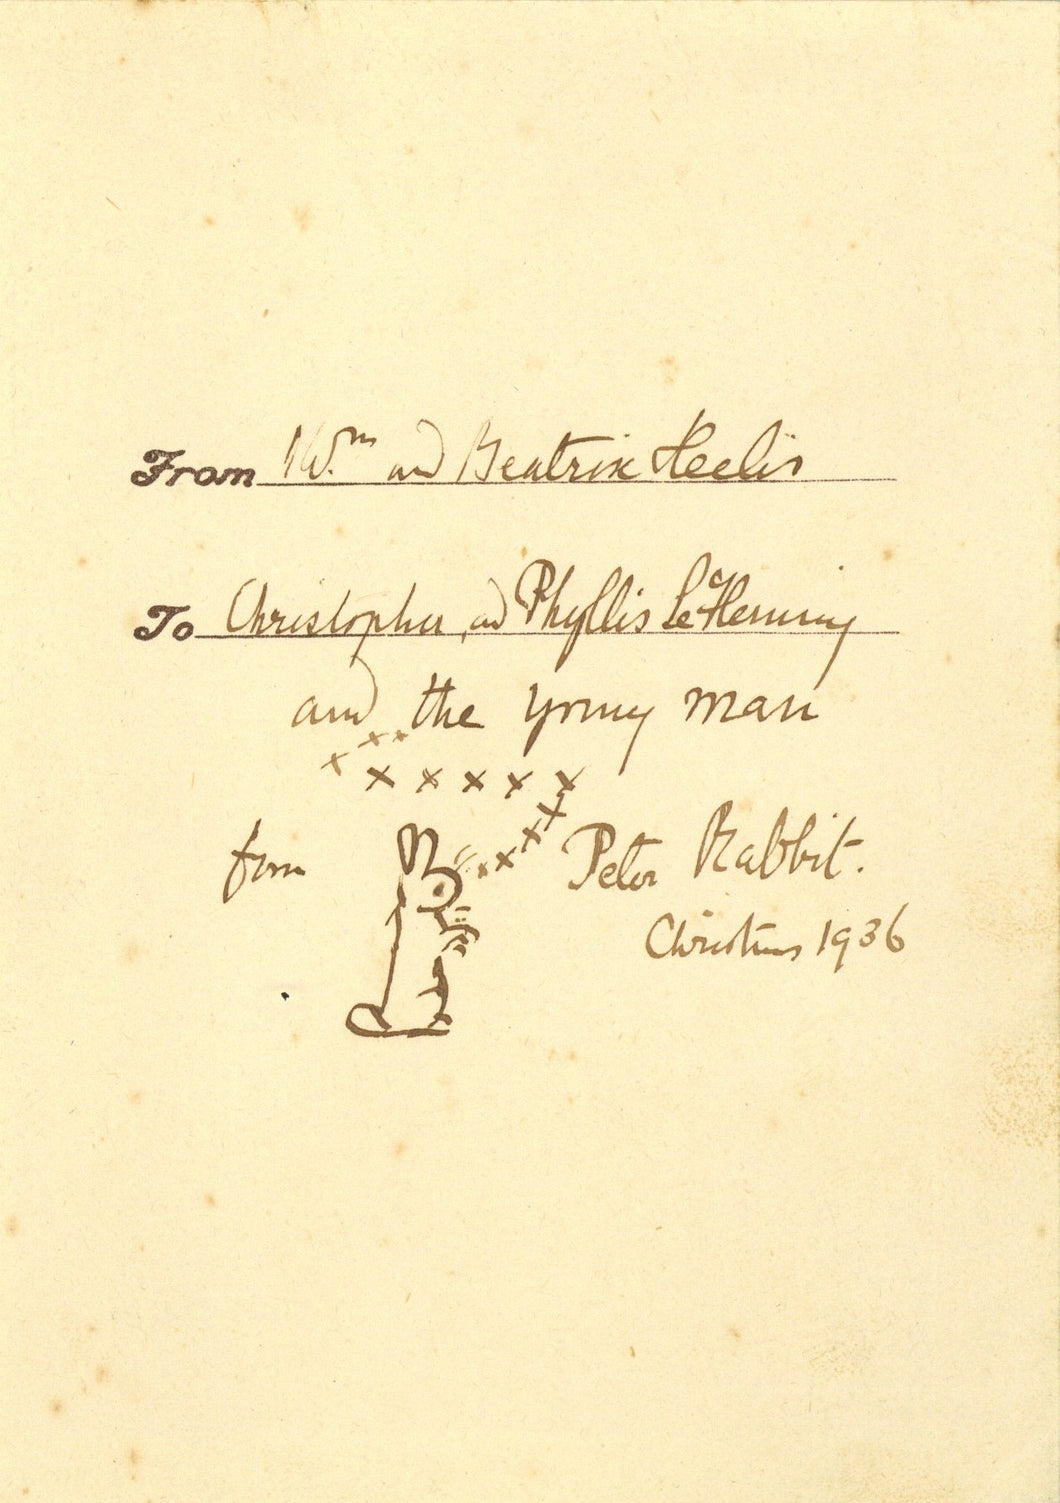 From Wm and Beatrix Heelis
To Christopher, and Phyllis Le Fleming
and the young man
x x x
x x x x x
from x x x x Peter Rabbit.
Christmas 1936